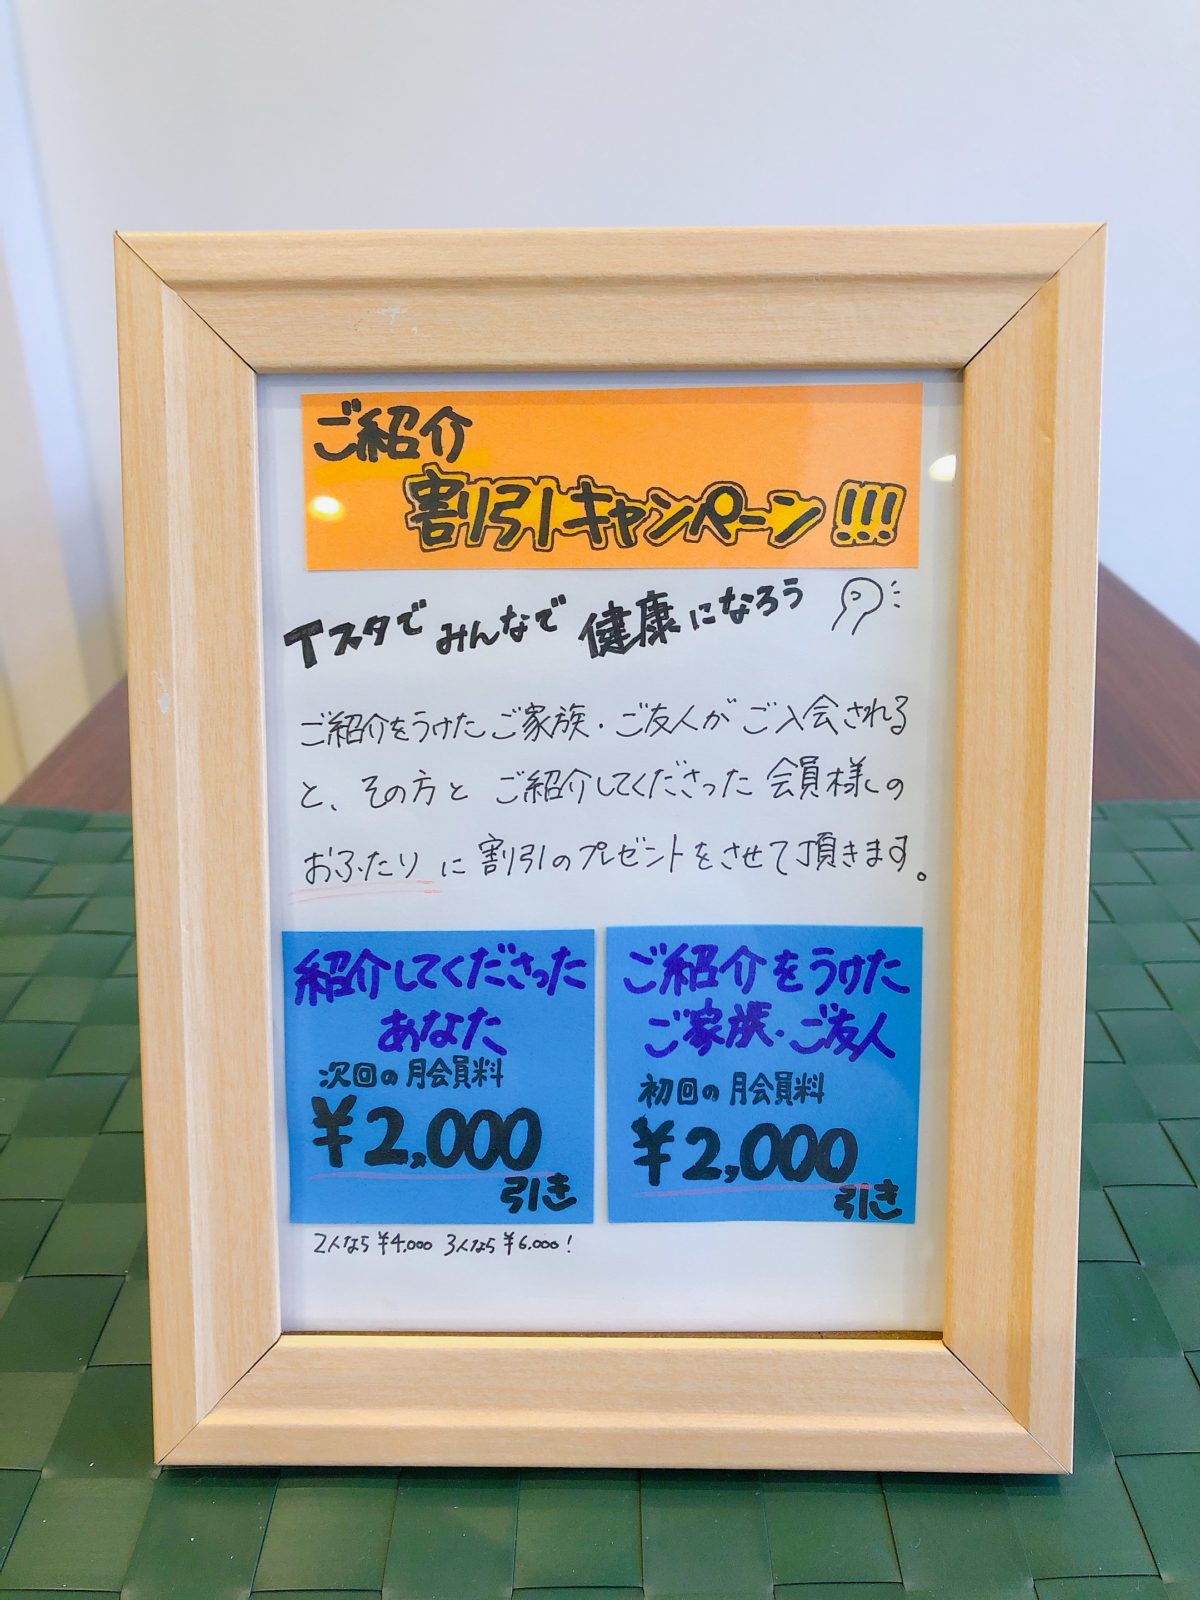 ご紹介
割引キャンペーン!!!
Tスタで みんなで 健康になろう
ご紹介をうけたご家族・ご友人がご入会される
と、その方と ご紹介してくださった 会員様の
おふたり に 割引のプレゼントをさせて頂きます。
紹介してくださった
あなた
次回の月会員料
¥2,000
引き
2人なら¥4,000 3人なら¥6,000!
ご紹介をうけた
ご家族・ご友人
初回の月会員料
¥2,000
引き